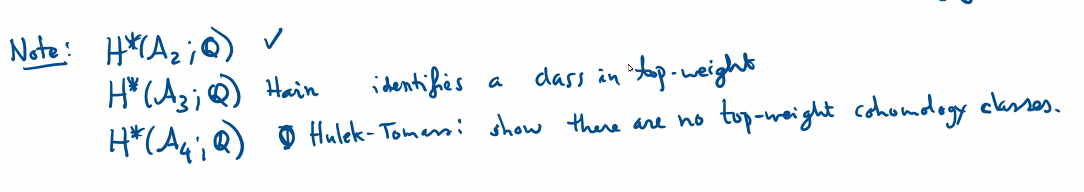 Note: H*(A₂; Q) ✓
H*(A₃; Q) Hain identifies a class in top-weight
H*(A₄; Q) Hulek-Tomasi: show there are no top-weight cohomology classes.